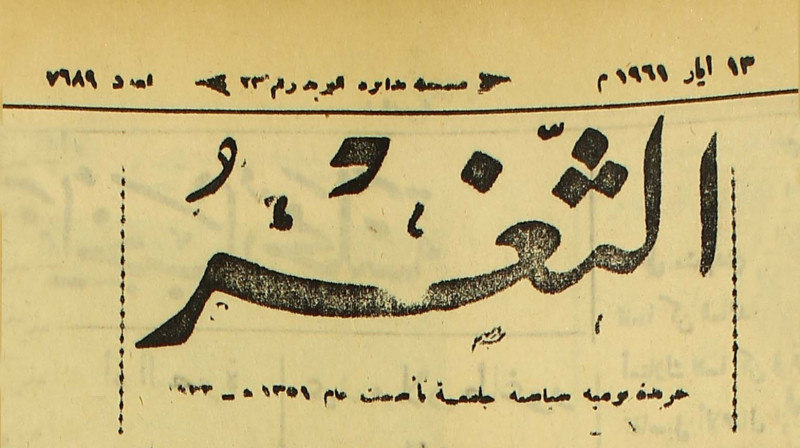 ١٣ أيار ١٩٦١ م مسجلة بدائرة البريد رقم ٢٣ العدد ٧٦٨٩
الثّغر
جريدة يومية سياسية جامعة تأسست عام ١٣٥١ هـ - ١٩٣٣